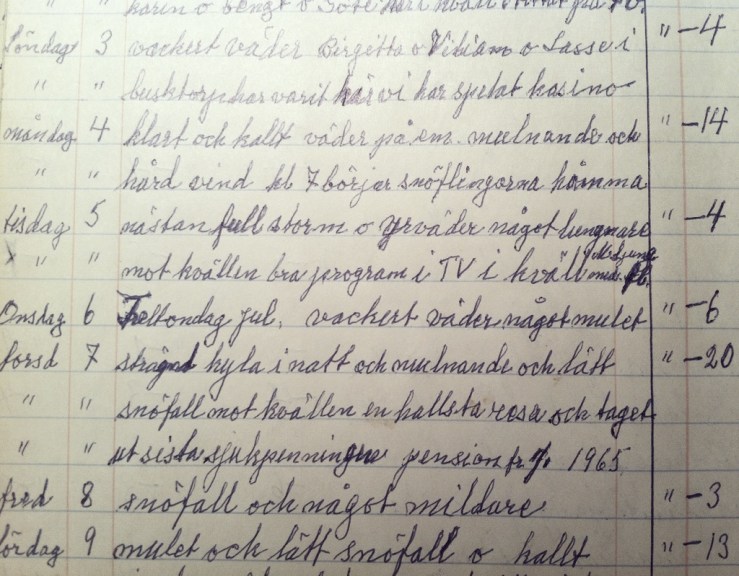 Karin o Bengt o
Söndag 3 vackert väder Birgitta o Viviann o Lasse i " -4
" " busktorp har varit här vi har spelat kasino
måndag 4 klart och kallt väder på em. mulnande och " -14
" " hård vind kl 7 börjar snöflingorna komma
tisdag 5 nästan full storm o yrväder något lungnare " -4
x " " mot kvällen bra program i TV i kväll
Onsdag 6 Trettondag jul. vackert väder något mulet " -6
torsd 7 sträng kyla i natt och mulnande och lätt " -20
" " snöfall mot kvällen en hallsta resa och taget
" " ut sista sjukpenningen pension fr 1/1 1965
fred 8 snöfall och något mildare " -3
lördag 9 mulet och lätt snöfall o kallt " -13